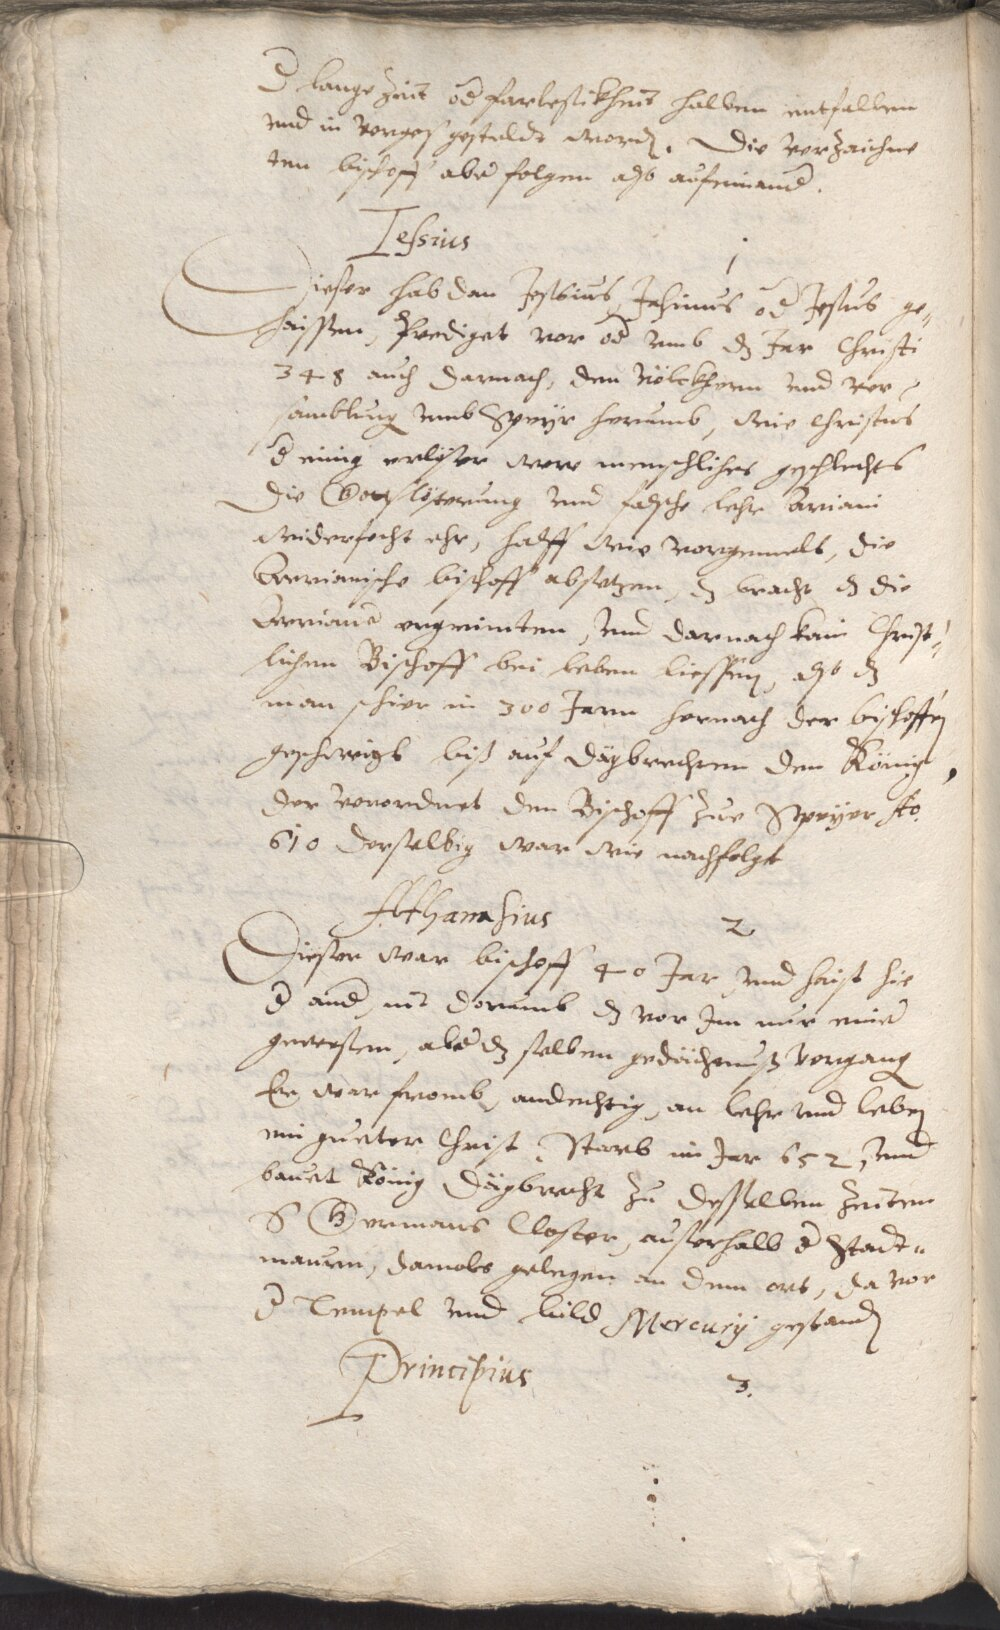 d lange Zeit od farlessikheit halben entfallen
und in Verges gestelt word. Die verzaichne
ten bischoff aber folgen also aufeinand.
Iessius 1
Dieser hab dan Jessius, Jessinus od Jessus ge„
haissen, Prediget vor od umb dz Jar Christi
348 auch darnach, den Völckhern und ver„
samblung umb Speyr herumb, wie Christus
d einig erlöser were menschliches geschlechts
die Gotzlösterung und falsche lehr Arriani
widerfocht ehr, halff wie vorgemelt, die
Arrianische bischoff absetzen, dz bracht dz die
Arrianer ergrimten, und darnach kain Christ„
lichen Bischoff bei leben liessen, also dz
man schier in 300 Jarn hernach der bischoffen
geschweigt biß auf Dägbrechten den König,
der verordnet den Bischoff zue Speyer Ao.
610 derselbig war wie nachfolgt
Athanasius 2
Dieser war bischoff 40 Jar, und haist hie
d and, nit dorumb dz vor Im nur einer
gewessen, aber dz selben gedächtnuß vergang
Er war fromb, andechtig, an lehr und leben
ein gueter Christ, Starb im Jar 652, und
bauet König Dägbrecht zu desselben zeiten
S Germans Closter, ausserhalb d Stadt„
mauren, damols gelegen an dem ort, da vor
d Tempel und bild Mercurij gestand
Principius 3.